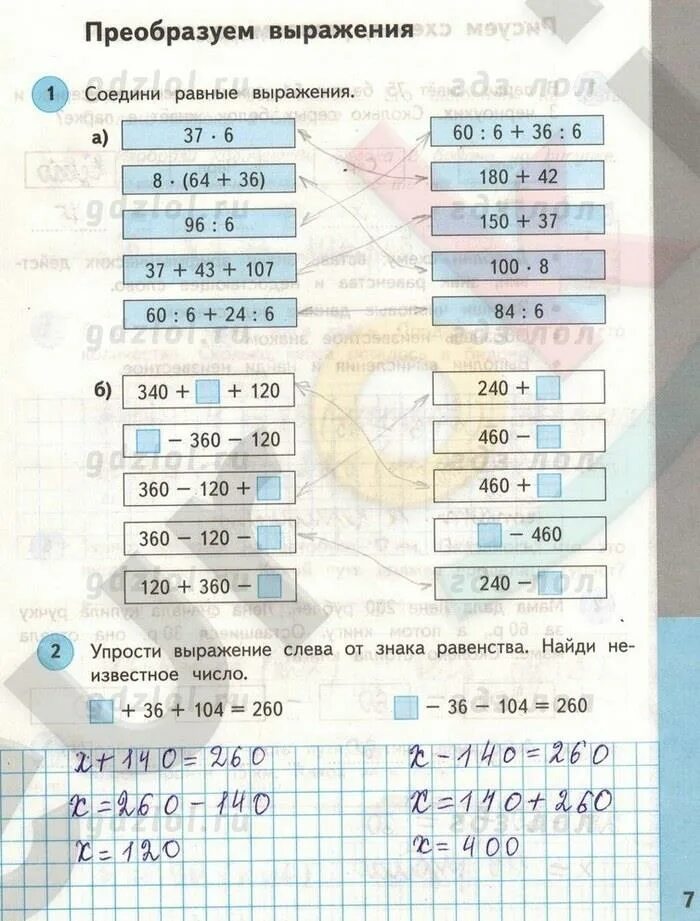 Преобразуем выражения
1 Соедини равные выражения.
а)
37 · 6
60 : 6 + 36 : 6
8 · (64 + 36)
180 + 42
96 : 6
150 + 37
37 + 43 + 107
100 · 8
60 : 6 + 24 : 6
84 : 6
б)
340 + □ + 120
240 + □
□ − 360 − 120
460 − □
360 − 120 + □
460 + □
360 − 120 − □
□ − 460
120 + 360 − □
240 − □
2 Упрости выражение слева от знака равенства. Найди не-
известное число.
□ + 36 + 104 = 260
□ − 36 − 104 = 260
x + 140 = 260
x − 140 = 260
x = 260 − 140
x = 140 + 260
x = 120
x = 400
7
gdzlol.ru
гдз.лол